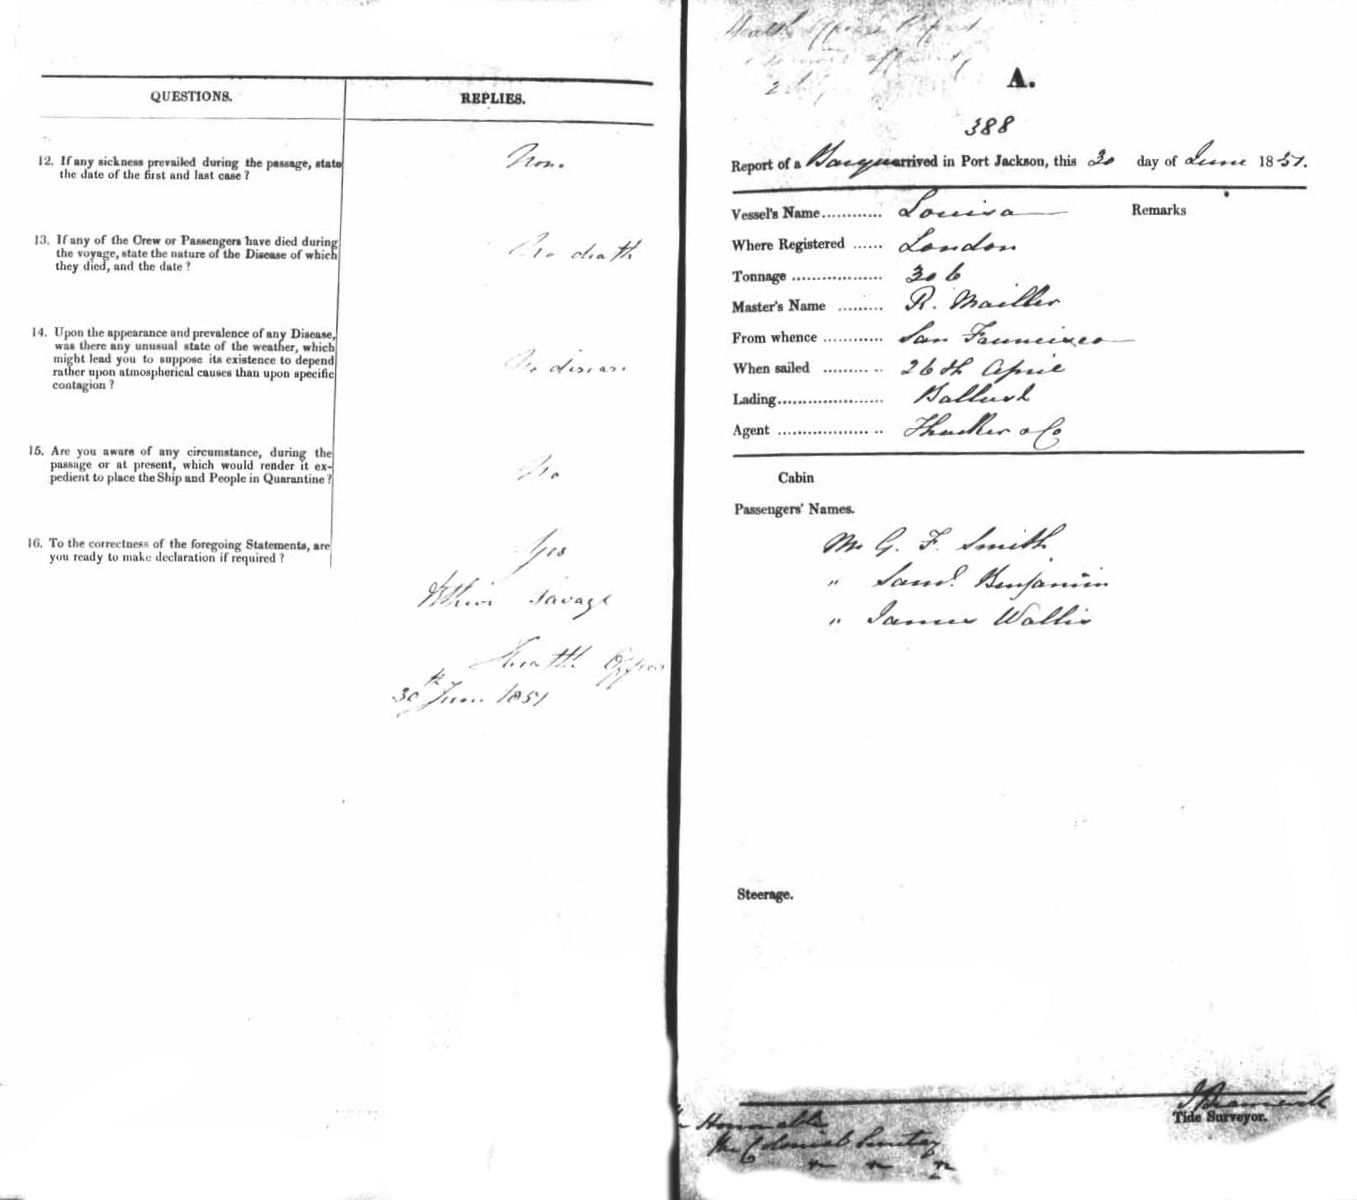 QUESTIONS. REPLIES.
12. If any sickness prevailed during the passage, state None
the date of the first and last case ?
13. If any of the Crew or Passengers have died during No death
the voyage, state the nature of the Disease of which
they died, and the date ?
14. Upon the appearance and prevalence of any Disease,
was there any unusual state of the weather, which
might lead you to suppose its existence to depend No disease
rather upon atmospherical causes than upon specific
contagion ?
15. Are you aware of any circumstance, during the
passage or at present, which would render it ex- No
pedient to place the Ship and People in Quarantine ?
16. To the correctness of the foregoing Statements, are Yes
you ready to make declaration if required ?
Savage
Health Officer
30th June 1851
Health Officer's Report
A.
388
Report of a Barque arrived in Port Jackson, this 30 day of June 1851.
Vessel's Name............ Louisa Remarks
Where Registered ...... London
Tonnage .................. 306
Master's Name ......... R. Mailler
From whence ............ San Francisco
When sailed ......... .. 26th April
Lading..................... Ballast
Agent .................. .. Thacker & Co
Cabin
Passengers' Names.
Mr G. F. Smith
" Saml. Benjamin
" James Wallis
Steerage.
Tide Surveyor.
Honorable
The Colonial Secretary